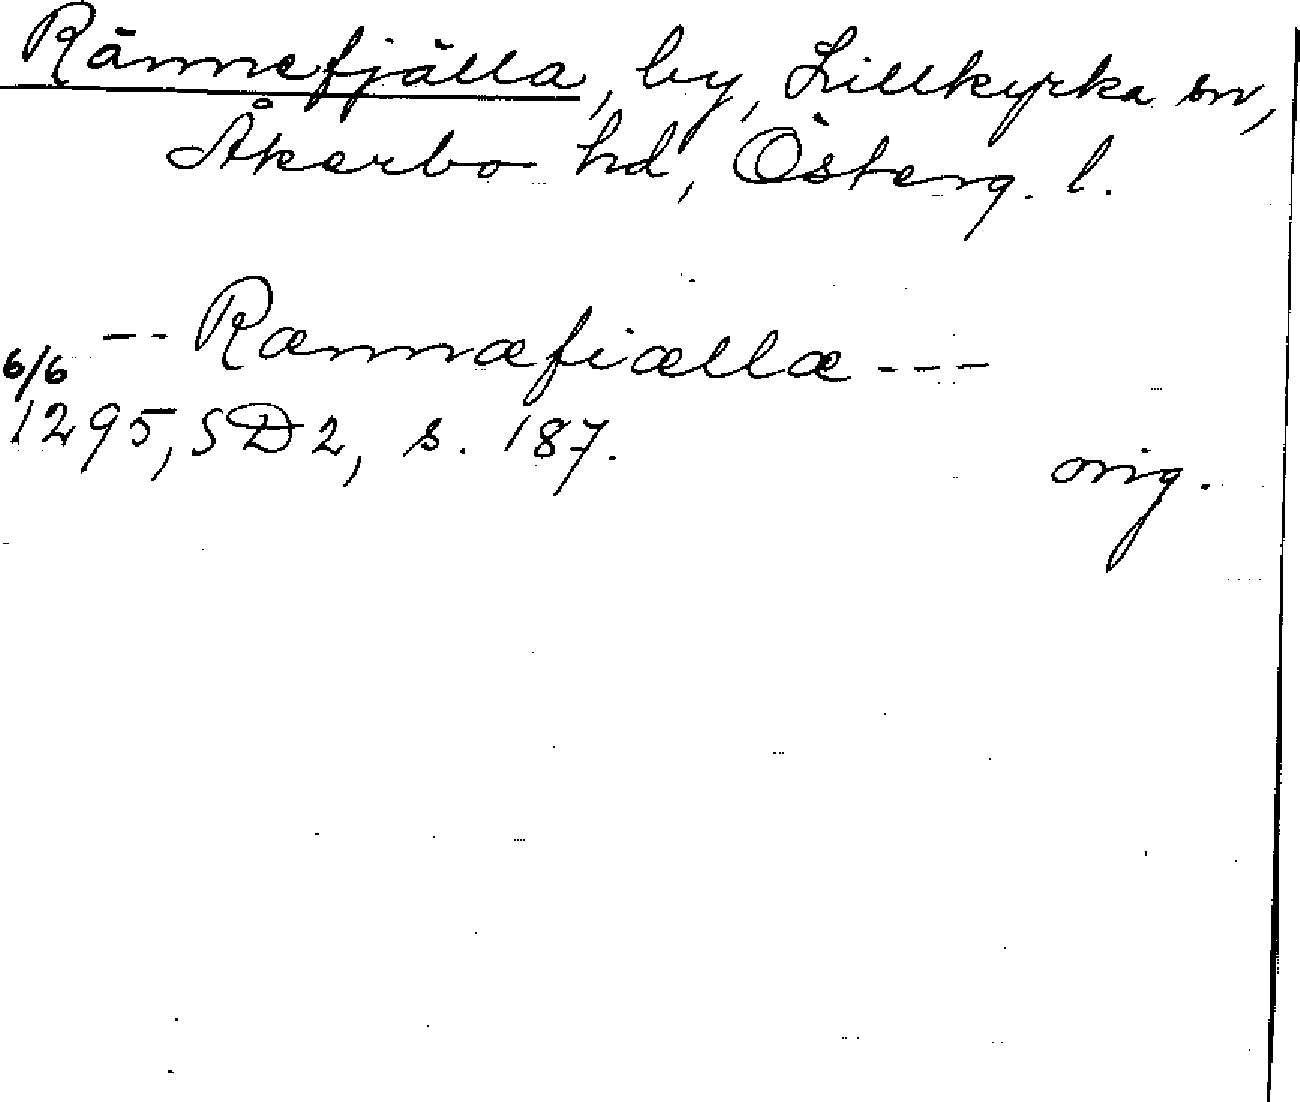 Rännefjälla, by, Lillkyrka sn,
Åkerbo hd, Österg. l.
-- Rænnæfiællæ ---
6/6
1295, SD 2, s. 187.
orig.